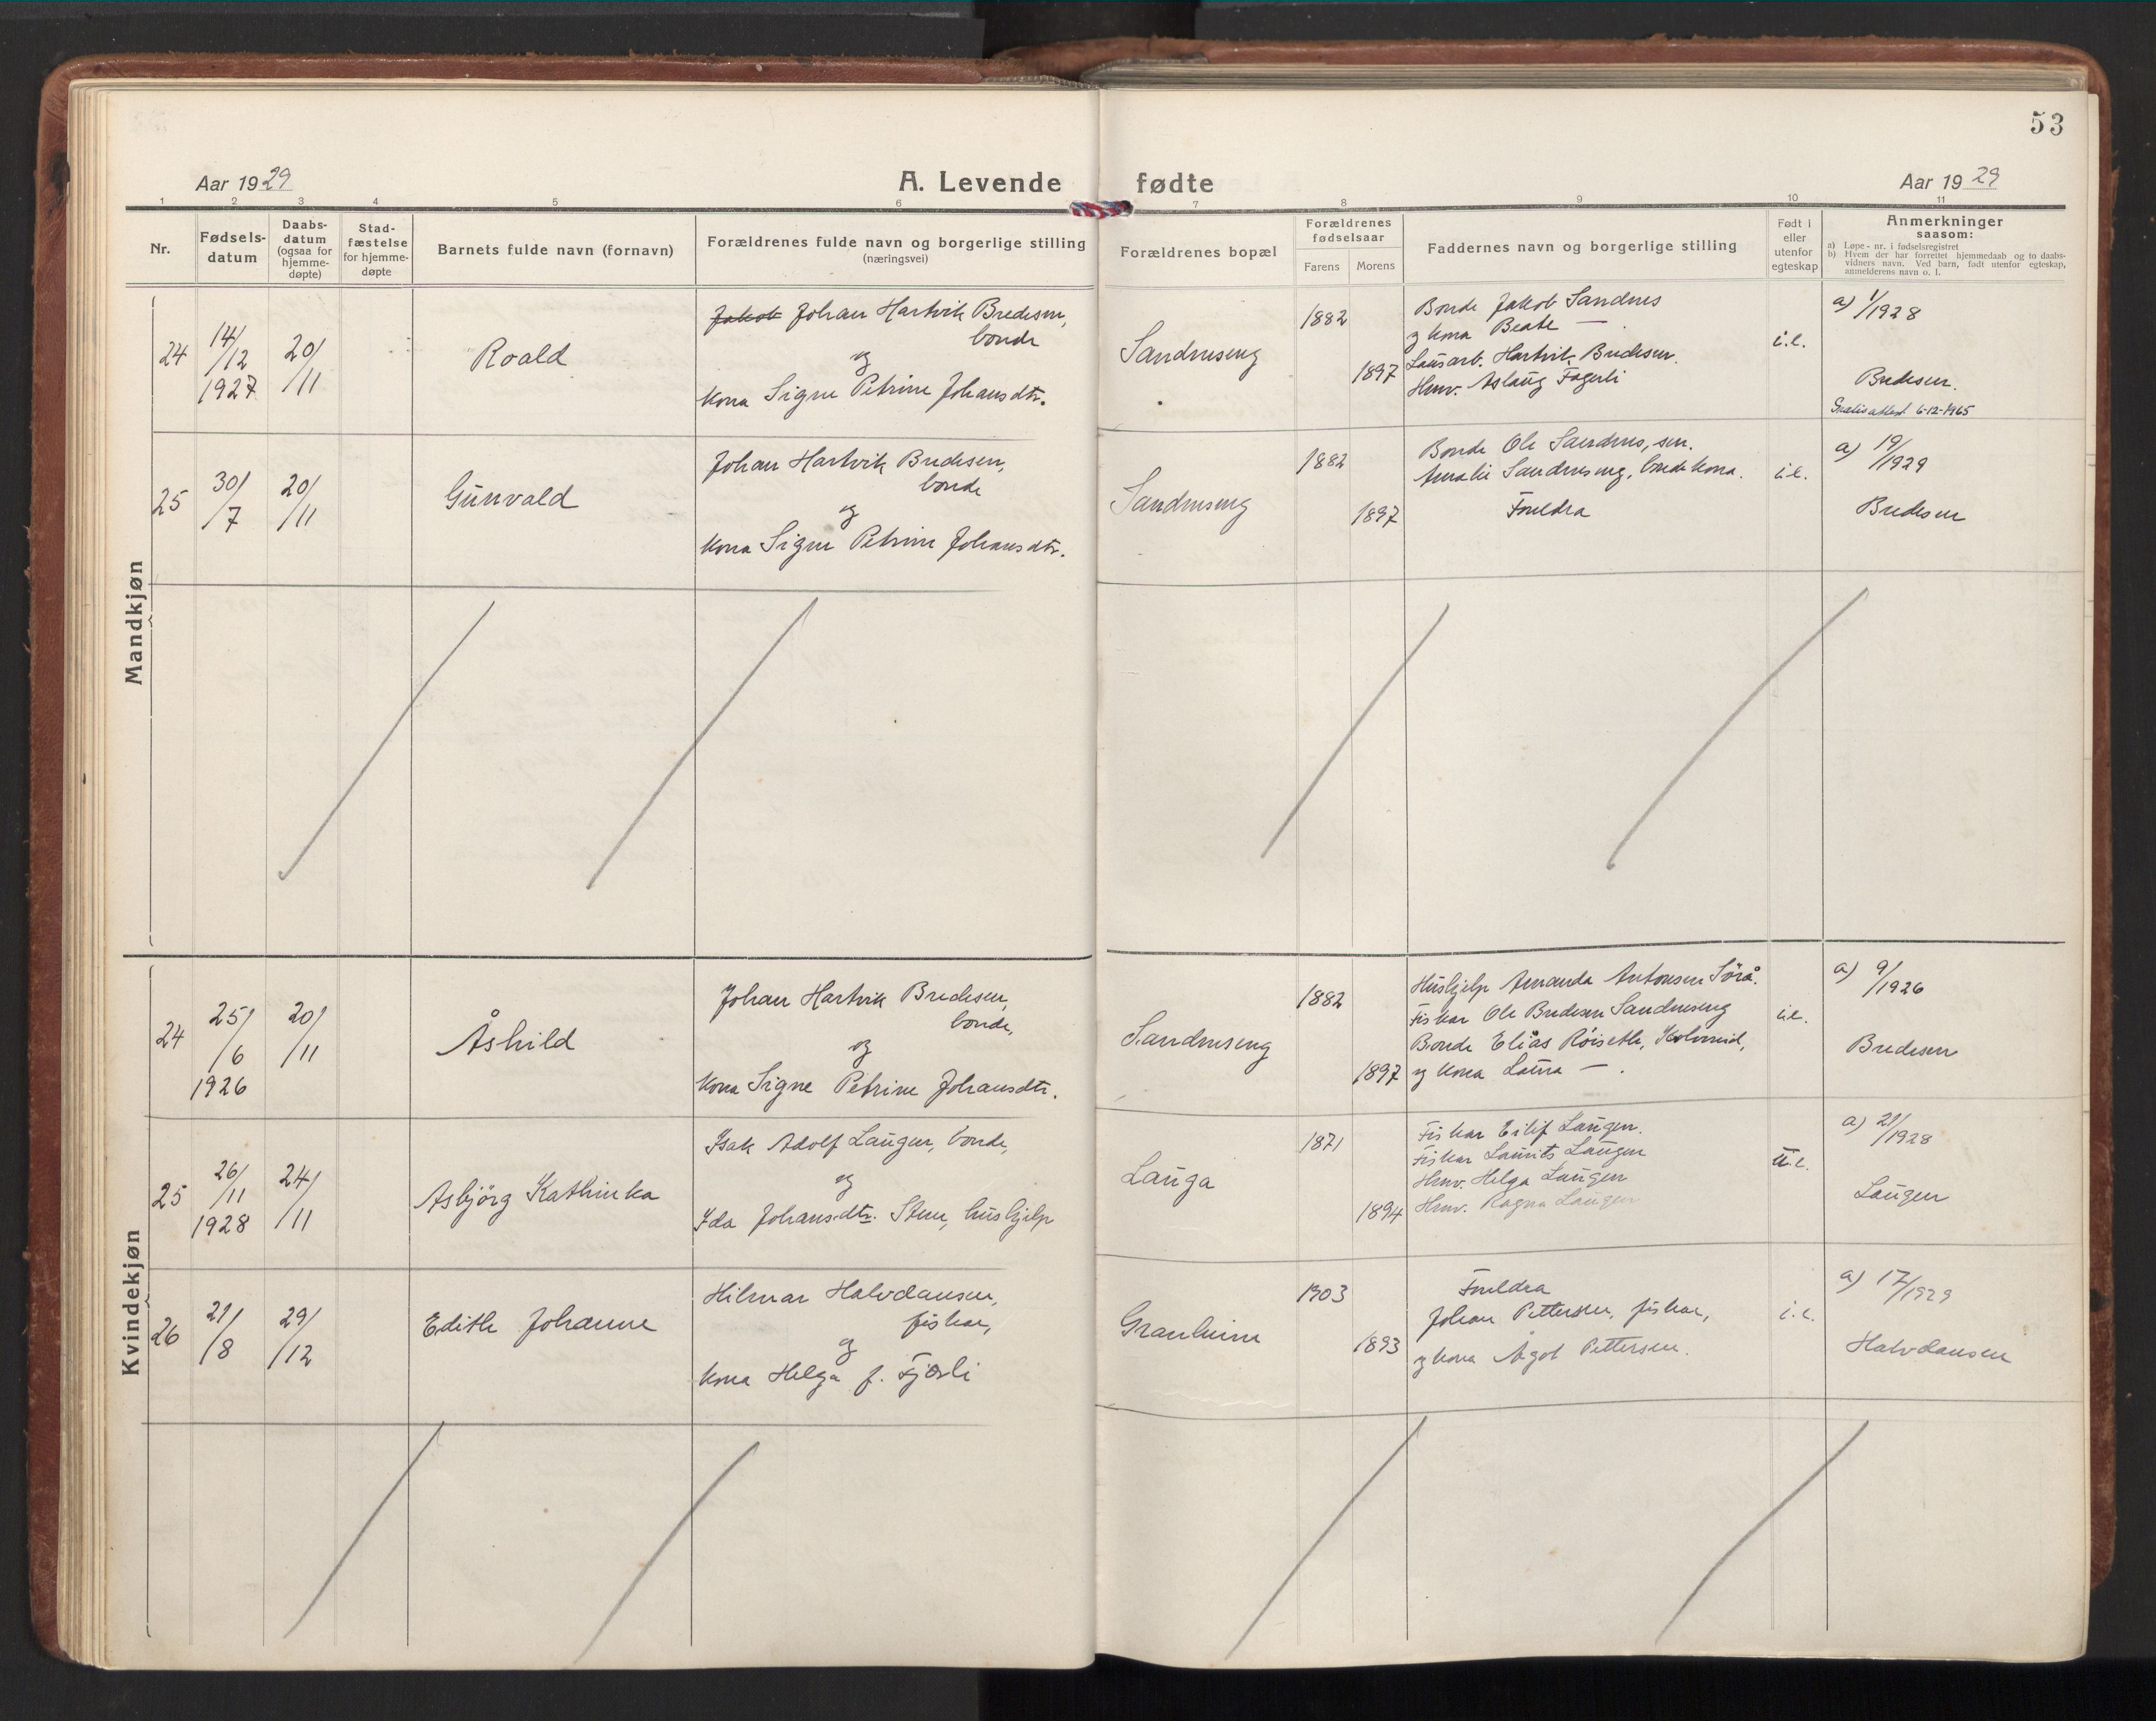 53
Aar 1929
A. Levende fødte
Aar 1929
1 2 3 4 5 6 7 8 9 10 11
Nr.
Fødsels-
datum
Daabs-
datum
(ogsaa for
hjemme-
døpte)
Stad-
fæstelse
for hjemme-
døpte
Barnets fulde navn (fornavn)
Forældrenes fulde navn og borgerlige stilling
(næringsvei)
Forældrenes bopæl
Forældrenes
fødselsaar
Farens Morens
Faddernes navn og borgerlige stilling
Født i
eller
utenfor
egteskap
Anmerkninger
saasom:
a) Løpe-nr. i fødselsregistret
b) Hvem der har forrettet hjemmedaab og to daabs-
vidners navn. Ved barn, født utenfor egteskap,
anmelderens navn o. l.
Mandkjøn
24
14/
/12
1927
20/
/11
Roald
Jakob Johan Hartvik Bredesen,
bonde
og
kona Signe Petrine Johansdtr.
Sandneseng
1882
1897
Bonde Jakob Sandnes
og kona Beate —
Lausarb. Hartvik Bredesen.
Hmv. Aslaug Fagerli
i.e.
a) 1/1928
Bredesen.
Gratisattest 6-12-1965
25
30/
/7
20/
/11
Gunvald
Johan Hartvik Bredesen,
bonde
og
kona Signe Petrine Johansdtr.
Sandneseng
1882
1897
Bonde Ole Sandnes, sen.
Amalie Sandneseng, bondekona.
Foreldra
i.e.
a) 19/1929
Bredesen
Kvindekjøn
24
25/
/6
1926
20/
/11
Åshild
Johan Hartvik Bredesen,
bonde,
og
kona Signe Petrine Johansdtr.
Sandneseng
1882
1897
Hushjelp Amanda Antonsen Sörå.
Fiskar Ole Bredesen Sandneseng
Bonde Elias Röiseth,
og kona Laura — .
i.e.
a) 9/1926
Bredesen
25
26/
/11
1928
24/
/11
Asbjörg Kathinka
Isak Adolf Laugen, bonde,
og
Ida Johansdtr. Stene, hushjelp
Lauga
1871
1894
Fiskar Eilif Laugen.
Fiskar Laurits Laugen
Hmv. Helga Laugen
Hmv. Ragna Laugen
u.e.
a) 21/1928
Laugen
26
21/
/8
29/
/12
Edith Johanne
Hilmar Halvdansen,
fiskar,
og
kona Helga f. Fjærli
Granheim
1903
1893
Foreldra
Johan Pettersen, fiskar,
og kona Ågot Pettersen.
i.e.
a) 17/1929
Halvdansen